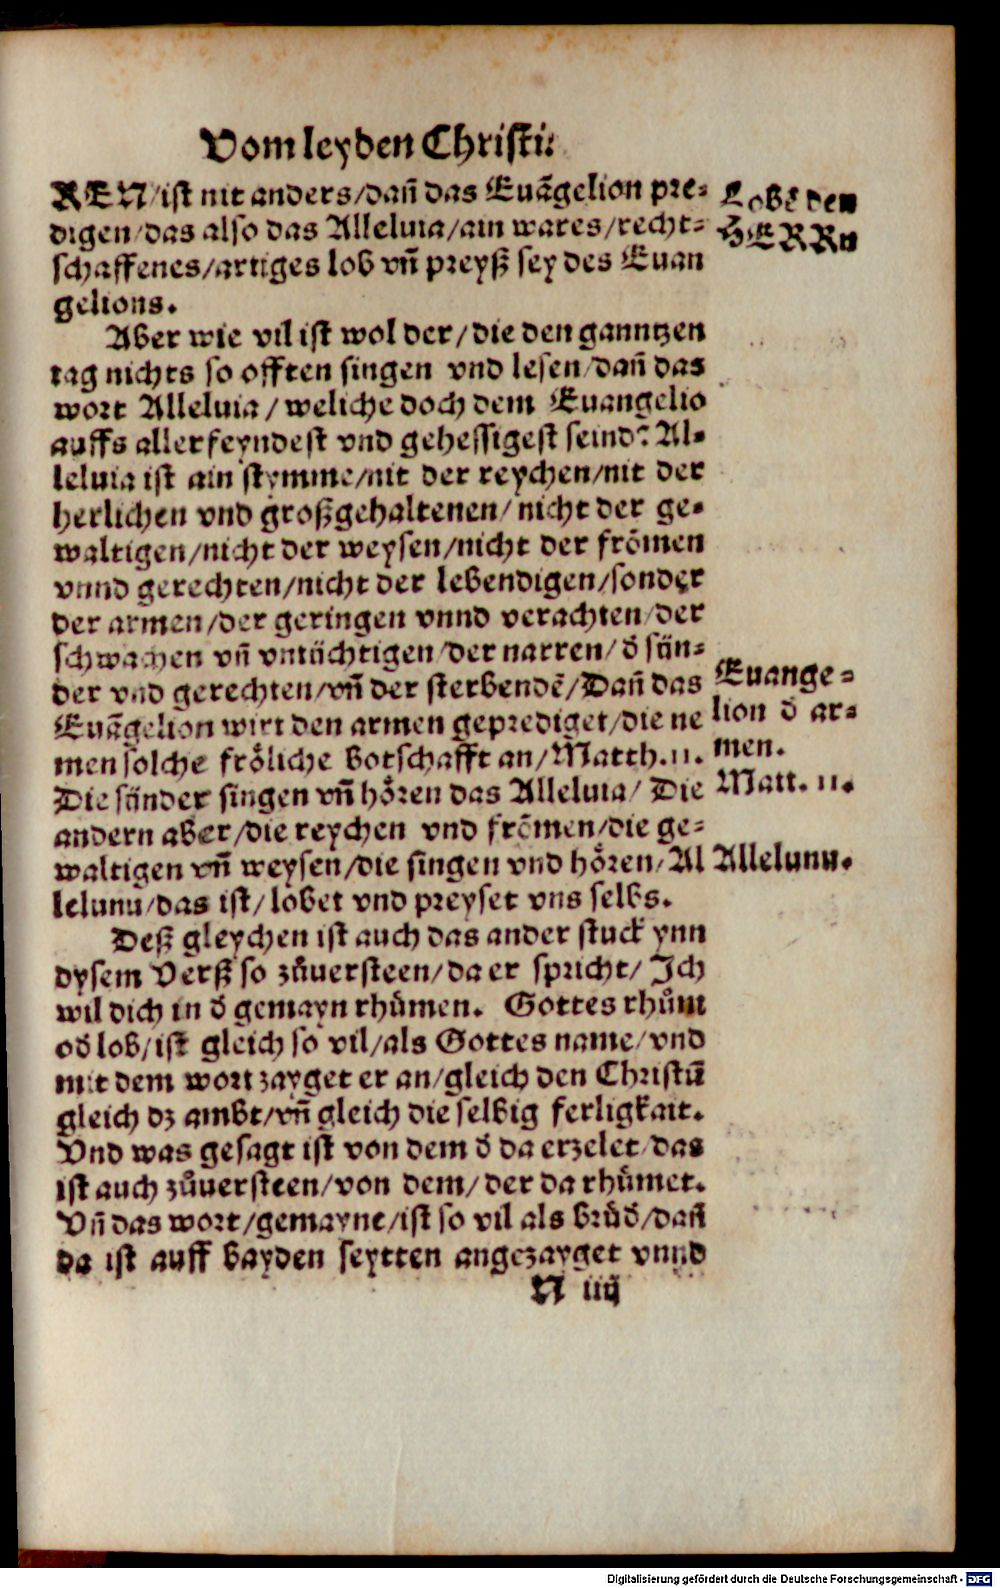 Vom leyden Christi.
REN/ist nit anders/dañ das Euãgelion pre-
digen/das also das Alleluia/ain wares/recht-
schaffenes/artiges lob vñ preyß sey des Euan
gelions.
Lobẽ den
HERRn
Aber wie vil ist wol der/die den ganntzen
tag nichts so offten singen vnd lesen/dañ das
wort Alleluia/weliche doch dem Euangelio
auffs allerfeyndest vnd gehessigest seind? Al-
leluia ist ain stymme/nit der reychen/nit der
herlichen vnd großgehaltenen/nicht der ge-
waltigen/nicht der weysen/nicht der frõmen
vnnd gerechten/nicht der lebendigen/sonder
der armen/der geringen vnnd verachten/der
schwachen vñ vntüchtigen/der narren/ð sün-
der vnd gerechten/vñ der sterbendẽ/Dañ das
Euãgelion wirt den armen geprediget/die ne
men solche fröliche botschafft an/Matth.11.
Die sünder singen vñ hören das Alleluia/Die
andern aber/die reychen vnd frõmen/die ge-
waltigen vñ weysen/die singen vnd hören/Al
lelunu/das ist/lobet vnd preyset vns selbs.
Euange-
lion ð ar-
men.
Matt. 11.
Allelunu.
Deß gleychen ist auch das ander stuck ynn
dysem Verß so zůuersteen/da er spricht/Ich
wil dich in ð gemayn rhůmen. Gottes rhům
oð lob/ist gleich so vil/als Gottes name/vnd
mit dem wort zayget er an/gleich den Christũ
gleich dz ambt/vñ gleich die selbig ferligkait.
Vnd was gesagt ist von dem ð da erzelet/das
ist auch zůuersteen/von dem/der da rhůmet.
Vñ das wort/gemayne/ist so vil als brůð/dañ
da ist auff bayden seytten angezayget vnnd
N iiij
Digitalisierung gefördert durch die Deutsche Forschungsgemeinschaft - DFG